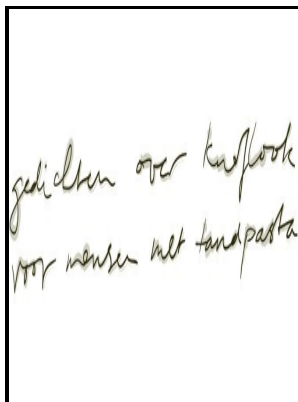 gedichten over knoflook
voor mensen met tandpasta